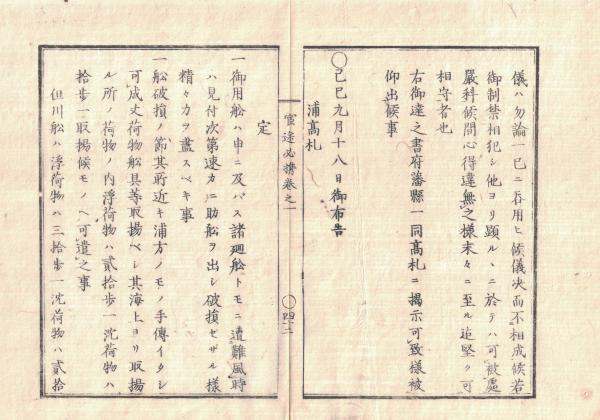 儀ハ勿論一己ニ呑用ヒ候儀决而不相成候若
御制禁相犯シ他ヨリ顕ルヽニ於テハ可被處
嚴科候間心得違無之様末々ニ至ル迄堅ク可
相守者也
右御達之書府藩縣一同高札ニ掲示可致様被
仰出候事
〇己巳九月十八日御布告
浦高札
官途必携巻之一
〇四十二
定
一御用舩ハ申ニ及バス諸廻舩トモニ遭難風時
ハ見付次第速カニ助舩ヲ出シ破損セザル様
精々力ヲ盡スベキ事
一舩破損ノ節其所近キ浦方ノモノ手傳イタシ
可成丈荷物舩具等取揚ベシ其海上ヨリ取揚
ル所ノ荷物ノ内浮荷物ハ貳拾歩一沈荷物ハ
拾歩一取揚候モノヘ可遣之事
但川舩ハ浮荷物ハ三拾歩一沈荷物ハ貳拾